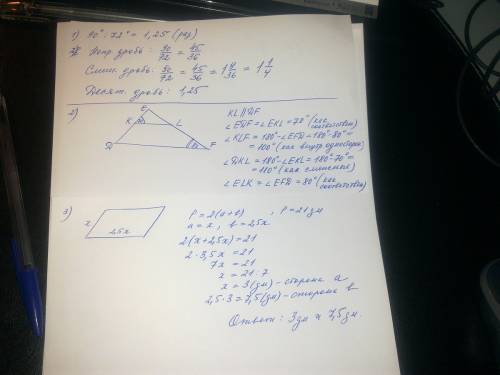 1) 90° : 72° = 1,25 (раз)
Непр. дробь: 90/72 = 45/36
Смеш. дробь: 90/72 = 45/36 = 1 9/36 = 1 1/4
Десят. дробь: 1,25
2)
E
K
L
D
F
KL || DF
∠EDF = ∠EKL = 70° (как соответств)
∠KLF = 180° - ∠EFD = 180° - 80° =
= 100° (как внутр односторон)
∠DKL = 180° - ∠EKL = 180° - 70° =
= 110° (как смежные)
∠ELK = ∠EFD = 80° (как соответств)
3)
x
2,5x
P = 2(a+b) , P = 21 дм
a = x , b = 2,5x
2(x + 2,5x) = 21
2 · 3,5x = 21
7x = 21
x = 21 : 7
x = 3 (дм) - сторона a
2,5 · 3 = 7,5 (дм) - сторона b
Ответ: 3 дм и 7,5 дм.